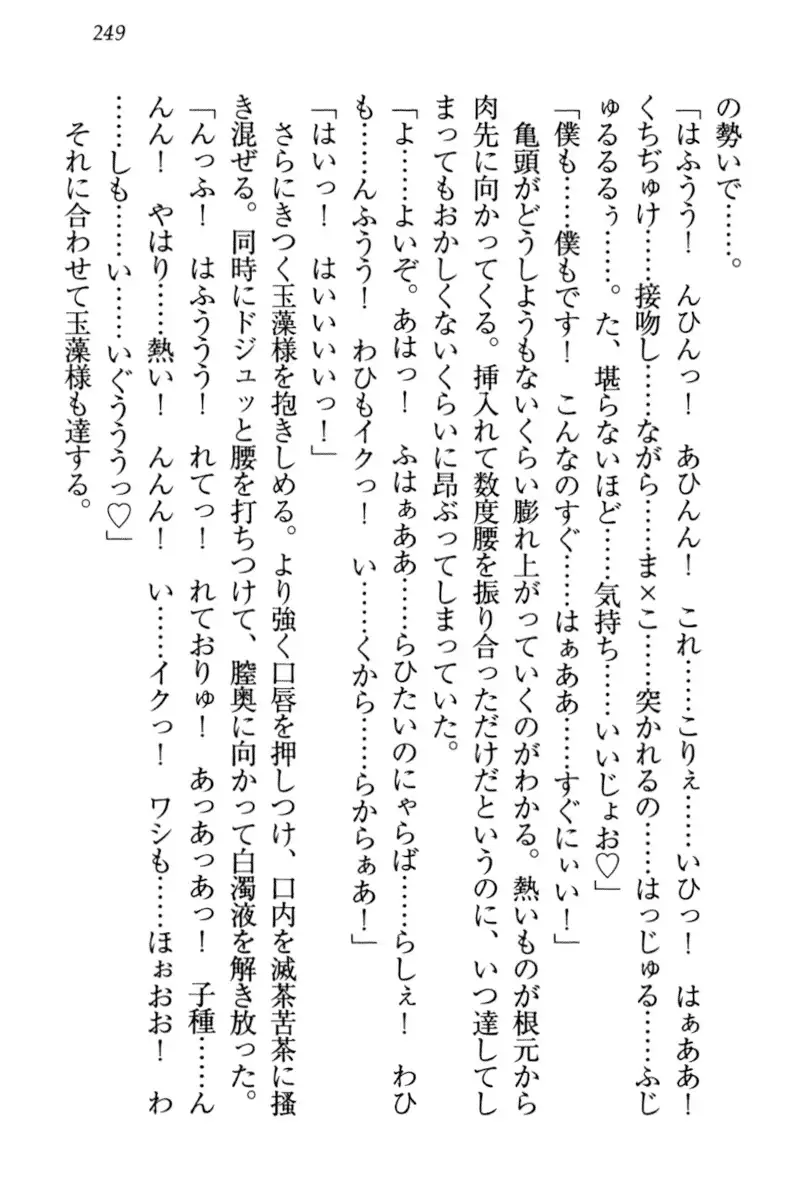 249
の勢いで……。
「はふうう！　んひんっ！　あひんん！　これ……こりぇ……いひっ！　はぁああ！
くちぢゅけ……接吻し……ながら……ま×こ……突かれるの……はっじゅる……ふじ
ゅるるるぅ……。た、堪らないほど……気持ち……いいじょお♡」
「僕も……僕もです！　こんなのすぐ……はぁああ……すぐにぃい！」
　亀頭がどうしようもないくらい膨れ上がっていくのがわかる。熱いものが根元から
肉先に向かってくる。挿入れて数度腰を振り合っただけだというのに、いつ達してし
まってもおかしくないくらいに昂ぶってしまっていた。
「よ……よいぞ。あはっ！　ふはぁああ……らひたいのにゃらば……らしぇ！　わひ
も……んふうう！　わひもイクっ！　い……くから……らからぁあ！」
「はいっ！　はいいいいっ！」
　さらにきつく玉藻様を抱きしめる。より強く口唇を押しつけ、口内を滅茶苦茶に掻
き混ぜる。同時にドジュッと腰を打ちつけて、膣奥に向かって白濁液を解き放った。
「んっふ！　はふううう！　れてっ！　れておりゅ！　あっあっあっ！　子種……ん
んん！　やはり……熱い！　んんん！　い……イクっ！　ワシも……ほぉおお！　わ
……しも……い……いぐうううっ♡」
　それに合わせて玉藻様も達する。